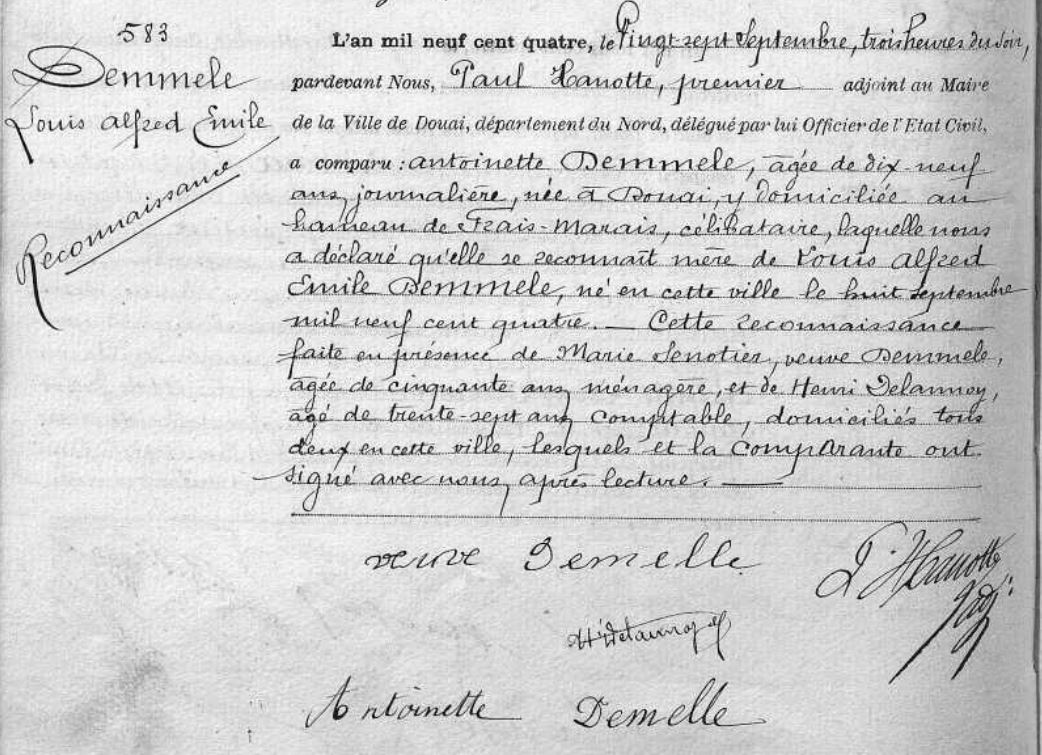 583
Demmele
Louis Alfred Emile
Reconnaissance
L'an mil neuf cent quatre, le Vingt-sept Septembre, trois heures du soir,
pardevant Nous, Paul Hanotte, premier adjoint au Maire
de la Ville de Douai, département du Nord, délégué par lui Officier de l'Etat Civil,
a comparu : Antoinette Demmele, âgée de dix-neuf
ans, journalière, née à Douai, y domiciliée au
hameau de Frais-Marais, célibataire, laquelle nous
a déclaré qu'elle se reconnaît mère de Louis Alfred
Emile Demmele, né en cette ville le huit septembre
mil neuf cent quatre. — Cette reconnaissance
faite en présence de Marie Senotier, veuve Demmele,
âgée de cinquante ans, ménagère, et de Henri Delannoy,
âgé de trente-sept ans, comptable, domiciliés tous
deux en cette ville, lesquels et la comparante ont
signé avec nous, après lecture. —
veuve Demelle
P. Hanotte
adj.
Hri Delannoy
Antoinette Demelle